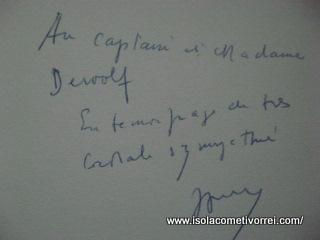 Au Captain et Madame
Dewolf
En témoignage de très
cordiale sympathie
www.isolacometivorrei.com/